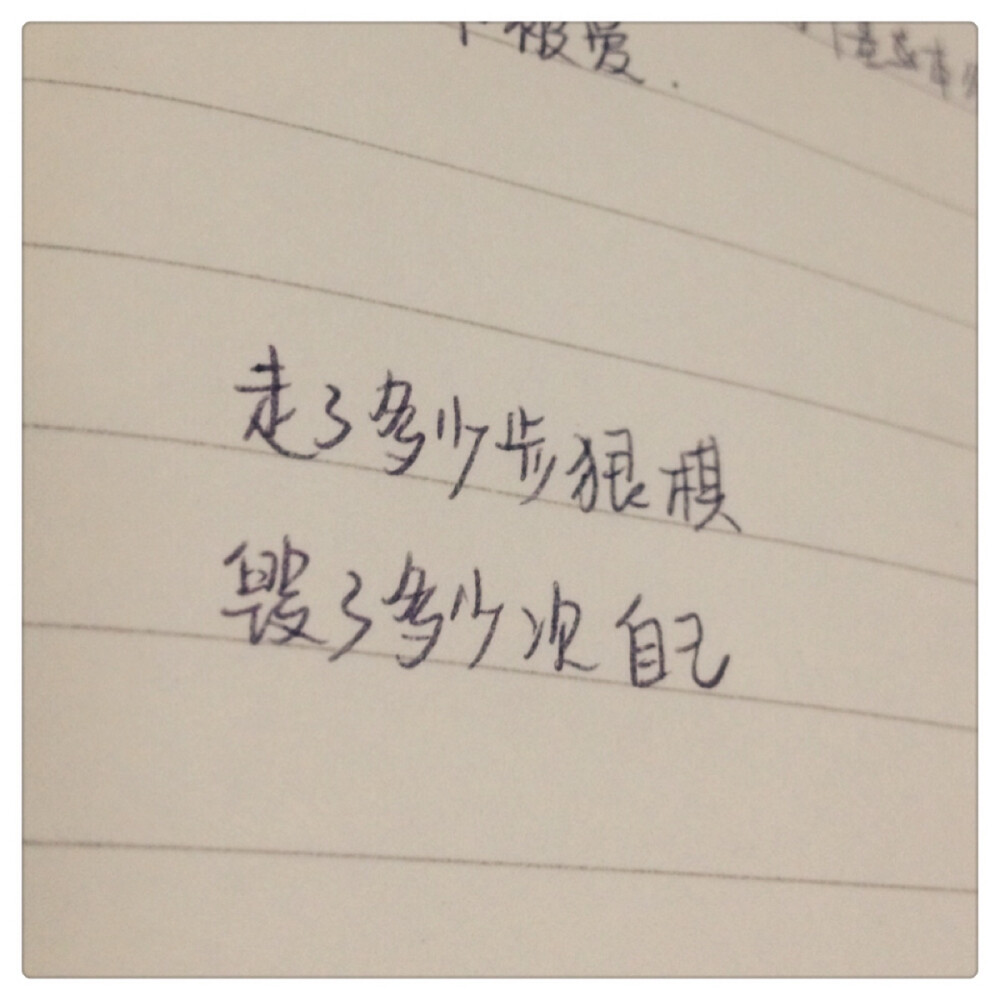 被爱.
走了多少步狠棋
毁了多少次自己